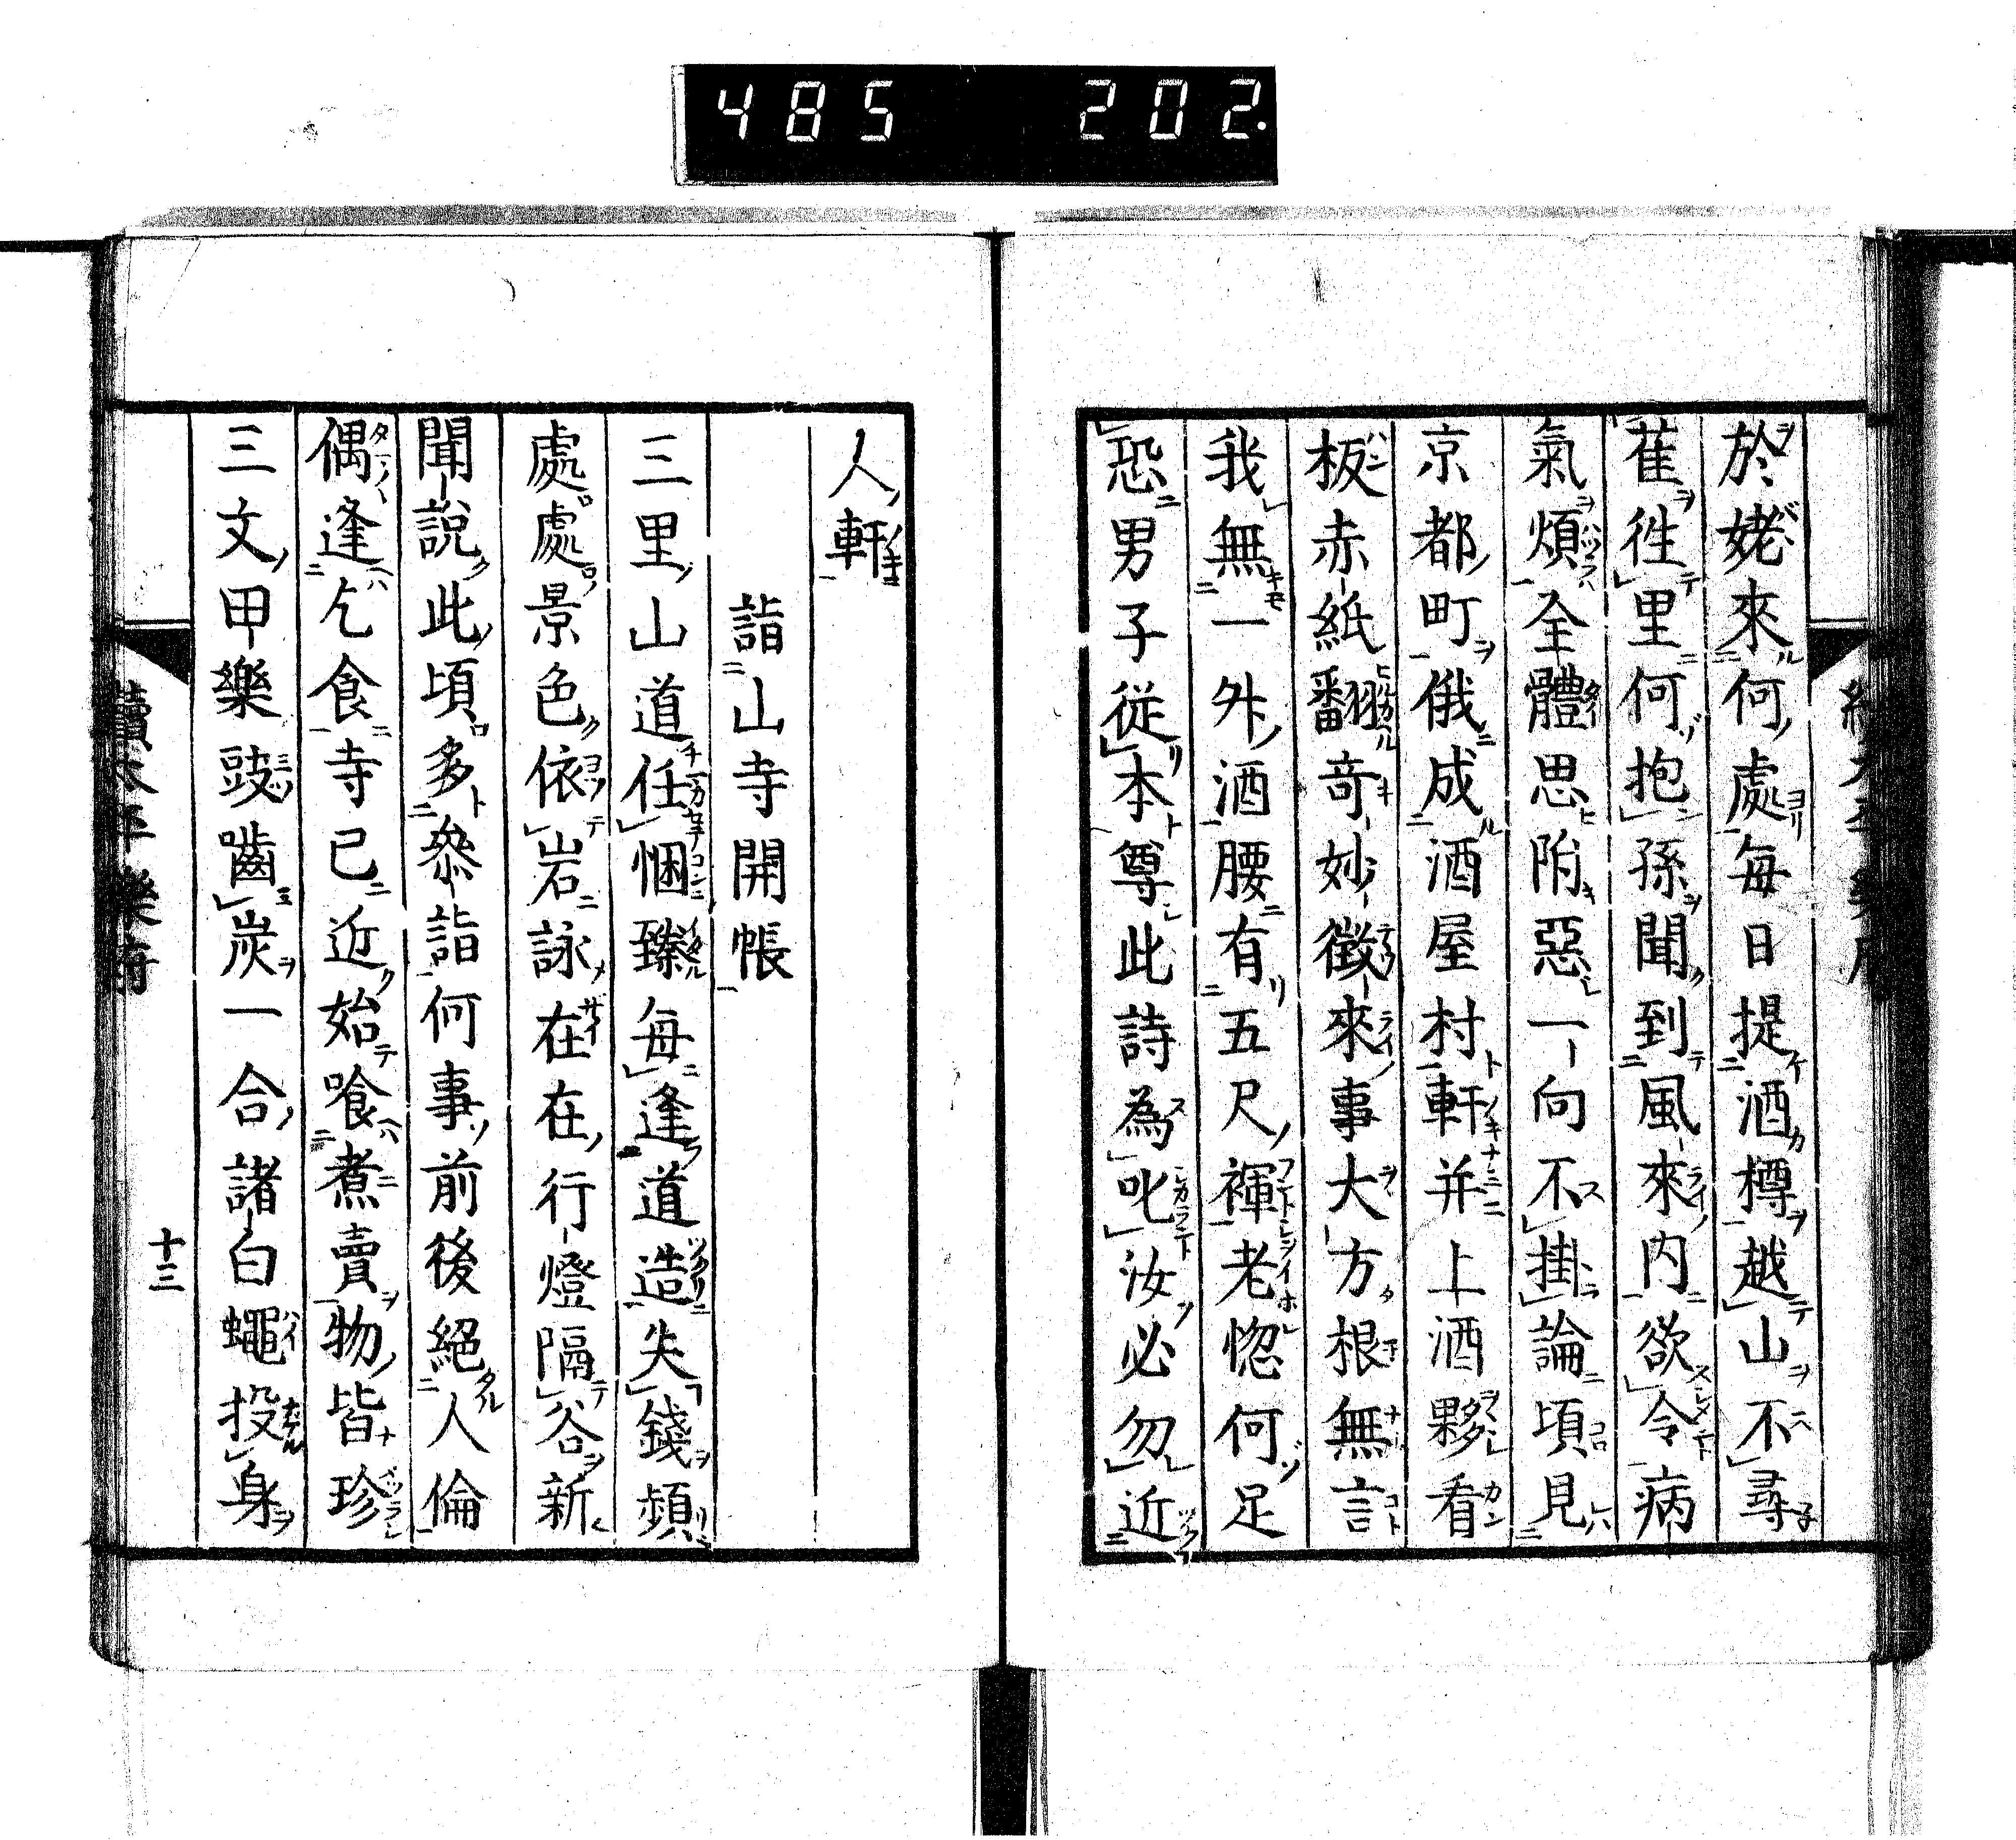 485 202.
於姥來何處每日提酒樽越山不尋
萑徃里何抱孫聞到風來内欲令病
氣煩全體思隋惡一向不掛論頃見
京都町俄成酒屋村軒并上酒夥看
板赤紙翻竒妙徴來事大方根無言
我無一外酒腰有五尺褌老惚何足
恐男子從本尊此詩為叱汝必勿近
人軒
詣山寺開帳
三里山道任悃臻每逢道造失錢頻
處處景色依岩詠在在行燈隔谷新
聞說此頃多叅詣何事前後絕人倫
偶逢乞食寺已近始喰煮賣物皆珍
三文甲樂豉嚙炭一合諸白蠅投身
續太平樂府
十三